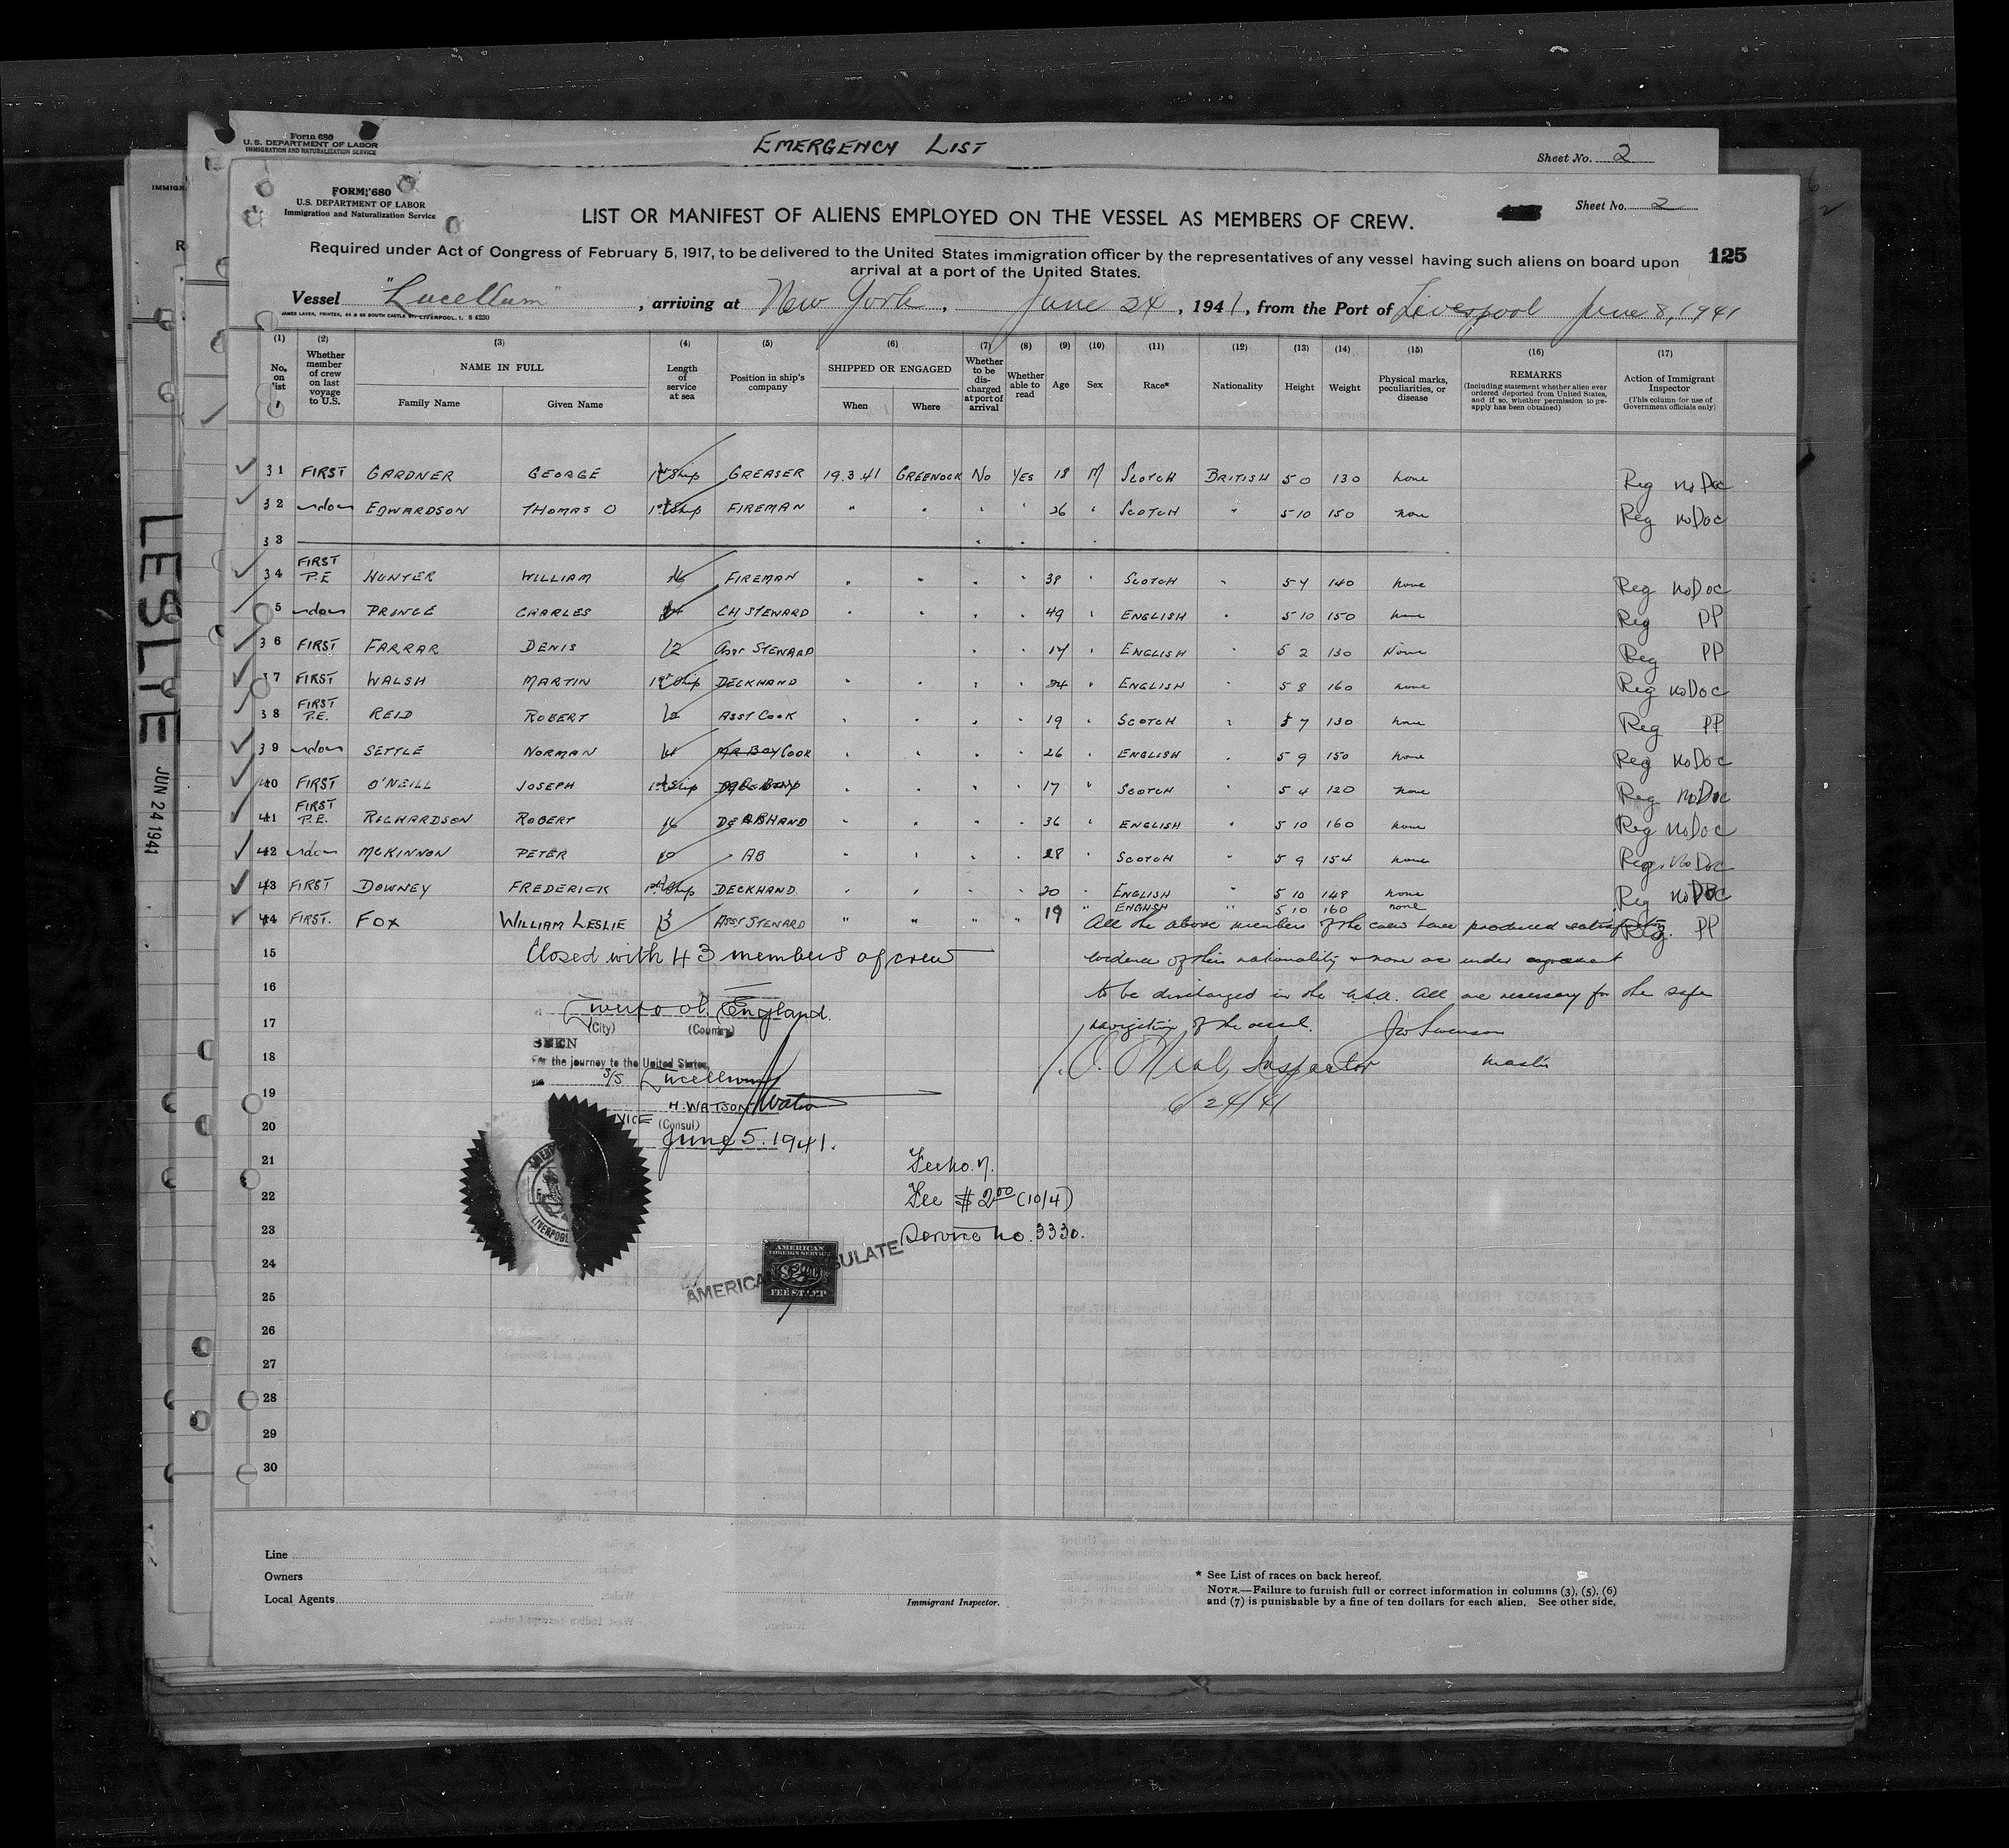 Form 680
U.S. DEPARTMENT OF LABOR
IMMIGRATION AND NATURALIZATION SERVICE
EMERGENCY LIST
Sheet No. 2
FORM 680
U.S. DEPARTMENT OF LABOR
Immigration and Naturalization Service
Sheet No. 2
LIST OR MANIFEST OF ALIENS EMPLOYED ON THE VESSEL AS MEMBERS OF CREW.
125
Required under Act of Congress of February 5, 1917, to be delivered to the United States immigration officer by the representatives of any vessel having such aliens on board upon
arrival at a port of the United States.
Vessel "Lucellum", arriving at New York, June 24, 1941, from the Port of Liverpool June 8, 1941
JAMES LAVER, PRINTER, SOUTH CASTLE ST. LIVERPOOL, 1. S 4230
(1) (2) (3) (4) (5) (6) (7) (8) (9) (10) (11) (12) (13) (14) (15) (16) (17)
No. on list
Whether member of crew on last voyage to U.S.
NAME IN FULL
Family Name
Given Name
Length of service at sea
Position in ship's company
SHIPPED OR ENGAGED
When
Where
Whether to be discharged at port of arrival
Whether able to read
Age
Sex
Race*
Nationality
Height
Weight
Physical marks, peculiarities, or disease
REMARKS
(Including statement whether alien ever ordered deported from United States, and if so, whether permission to re-apply has been obtained)
Action of Immigrant Inspector
(This column for use of Government officials only)
31 FIRST GARDNER GEORGE 1st Ship GREASER 19.3.41 GREENOCK No YES 18 M SCOTCH BRITISH 5 0 130 none Reg no Doc
32 EDWARDSON THOMAS O 1st Ship FIREMAN " " " " 26 " SCOTCH " 5 10 150 none Reg no Doc
33
34 FIRST P.E HUNTER WILLIAM 16 FIREMAN " " " " 39 " SCOTCH " 5 7 140 none Reg no Doc
5 PRINCE CHARLES CH STEWARD " " " " 49 " ENGLISH " 5 10 150 none Reg PP
36 FIRST FARRAR DENIS 12 Asst STEWARD " " 17 " ENGLISH " 5 2 130 None Reg PP
37 FIRST WALSH MARTIN 1st Ship DECKHAND " " " " 24 " ENGLISH " 5 8 160 none Reg no Doc
38 FIRST P.E. REID ROBERT ASST COOK " " " " 19 " SCOTCH " 5 7 130 none Reg PP
39 SETTLE NORMAN COOK " " " " 26 " ENGLISH " 5 9 150 none Reg no Doc
40 FIRST O'NEILL JOSEPH 1st Ship " " " " 17 " SCOTCH " 5 4 120 none Reg no Doc
41 FIRST P.E. RICHARDSON ROBERT 16 " " " " 36 " ENGLISH " 5 10 160 none Reg no Doc
42 McKINNON PETER 10 AB " " " " 28 " SCOTCH " 5 9 154 none Reg. no Doc
43 FIRST DOWNEY FREDERICK 1st Ship DECKHAND " " " " 20 " ENGLISH " 5 10 149 none Reg no Doc
44 FIRST. FOX WILLIAM LESLIE 3 ASST STEWARD " " " " 19 " ENGLISH " 5 10 160 none Reg. PP
All the above members of the crew have produced satisfactory
15 Closed with 43 members of crew
evidence of their nationality & none are under agreement
16 to be discharged in the U.S.A. All are necessary for the safe
17 navigation of the vessel.
Master
Liverpool, England.
(City) (Country)
SEEN
For the journey to the United States
S/S Lucellum
H. WATSON Watson
VICE (Consul)
June 5. 1941.
Inspector
6/24/41
18
19
20
21
22
23
24
25
26
27
28
29
30
Fee no. 7.
Fee $2.00 (10/4)
Service no. 3330.
LIVERPOOL
AMERICAN CONSULATE
AMERICAN
FOREIGN SERVICE
$2
FEE STAMP
Line
Owners
Local Agents
Immigrant Inspector.
* See List of races on back hereof.
NOTE.—Failure to furnish full or correct information in columns (3), (5), (6)
and (7) is punishable by a fine of ten dollars for each alien. See other side.
LESLIE
JUN 24 1941